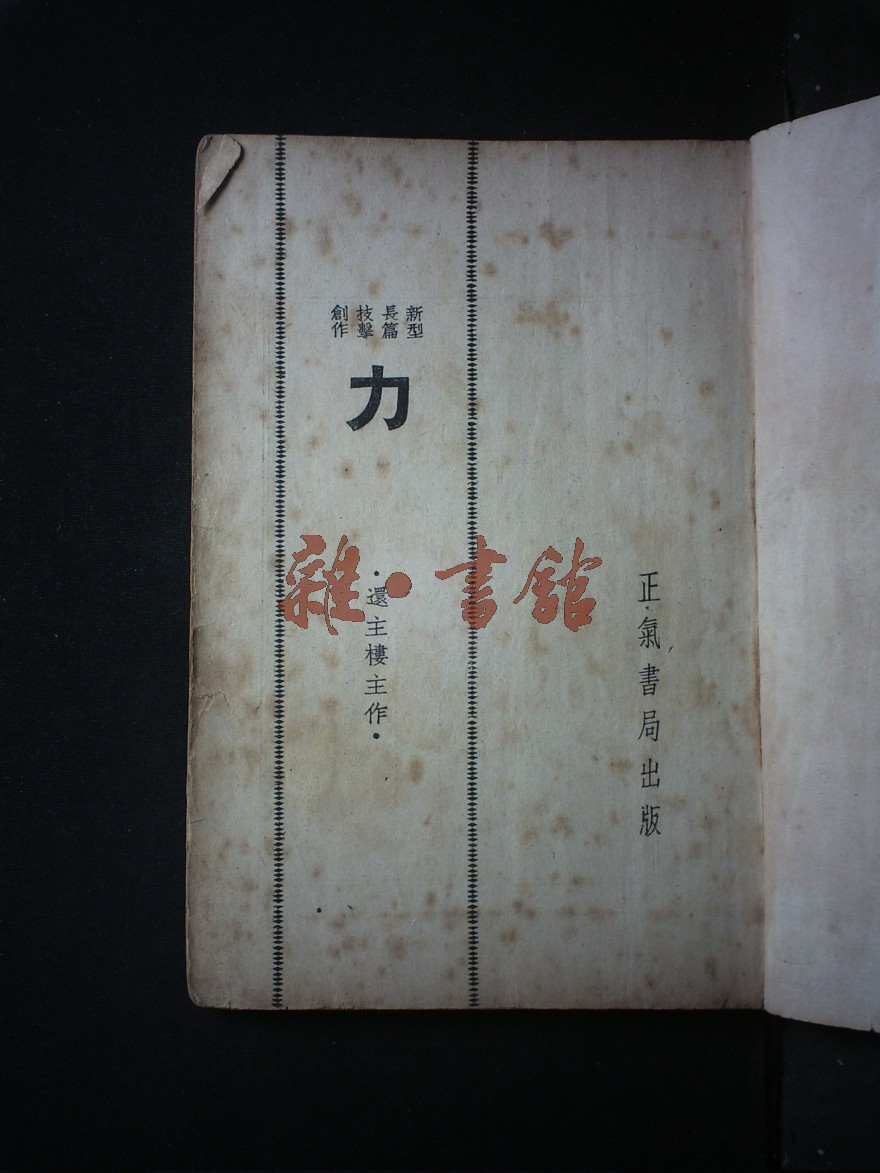 正氣書局出版
新型
長篇
技擊
創作
力
·還主樓主作·
雜·書館